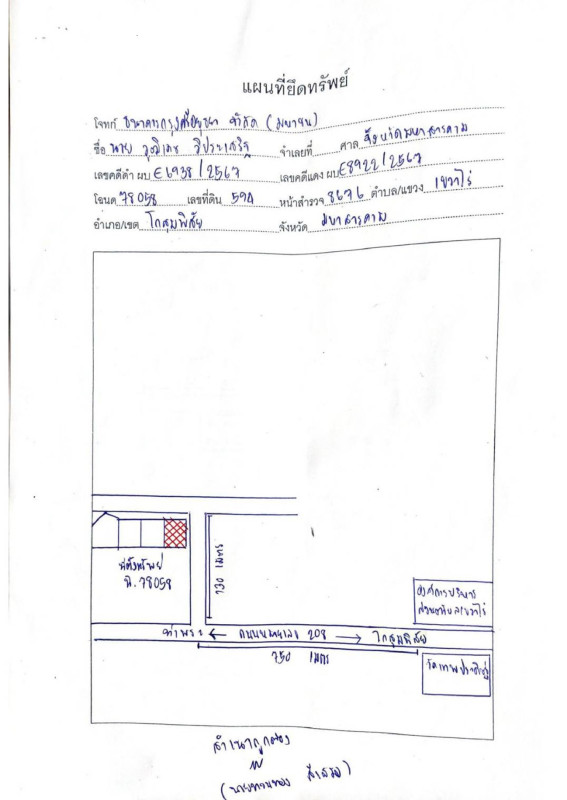 แผนที่ยึดทรัพย์
โจทก์ ธนาคารกรุงศรีอยุธยา จำกัด (มหาชน)
ชื่อ นาย วุฒิเดช จำเลยที่ ศาล จังหวัดมหาสารคาม
เลขคดีดำ ผบ E6938/2567 เลขคดีแดง ผบ E8922/2567
โฉนด 78058 เลขที่ดิน 594 หน้าสำรวจ 8676 ตำบล/แขวง เขวาไร่
อำเภอ/เขต โกสุมพิสัย จังหวัด มหาสารคาม
ที่ตั้งทรัพย์
ฉ.78058
130 เมตร
องค์การบริหาร
ส่วนตำบลเขวาไร่
ท่าพระ ถนนหมายเลข 208 โกสุมพิสัย
750 เมตร
สำเนาถูกต้อง